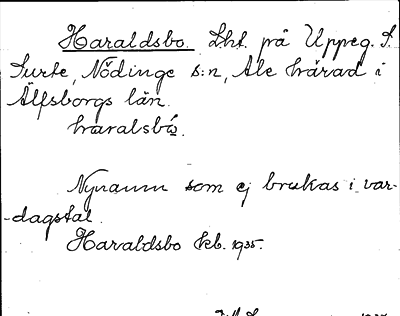 Haraldsbo. Lht. på Uppeg. S.
Surte, Nödinge s:n, Ale härad i
Älfsborgs län.
haralsbó.
Nynamn som ej brukas i var-
-dagstal.
Haraldsbo kb. 1935.